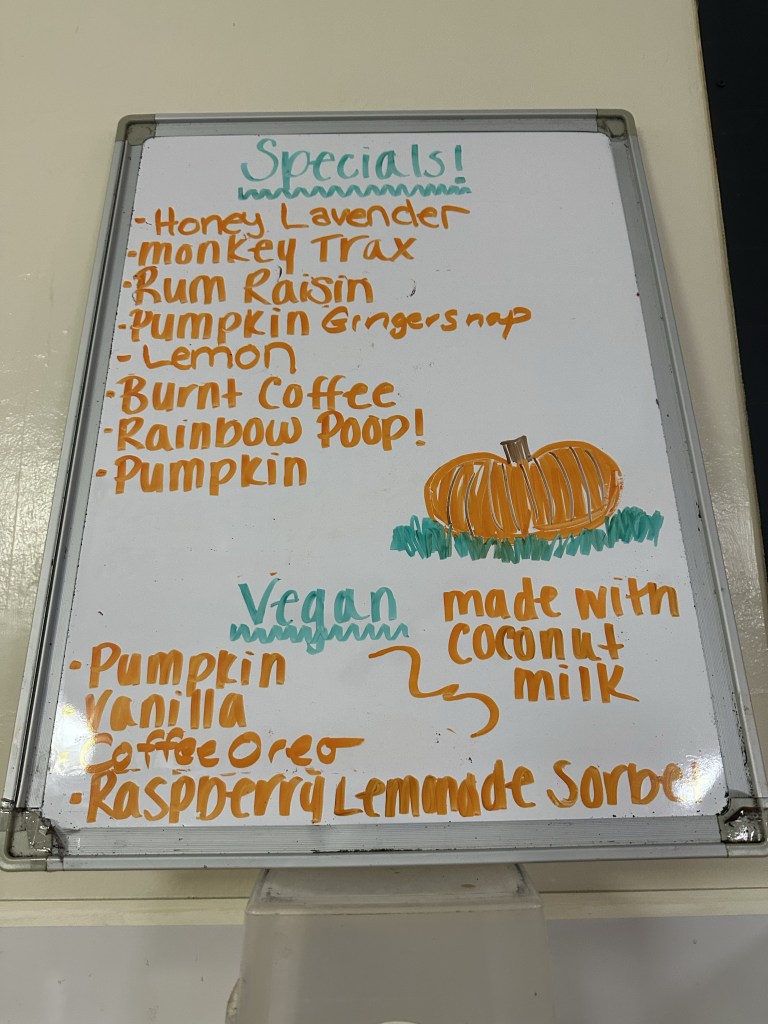 Specials!
-Honey Lavender
-monkey Trax
-Rum Raisin
-Pumpkin Gingersnap
-Lemon
-Burnt Coffee
-Rainbow Poop!
-Pumpkin
Vegan
made with
coconut
milk
-Pumpkin
Vanilla
Coffee Oreo
-Raspberry Lemonade Sorbet